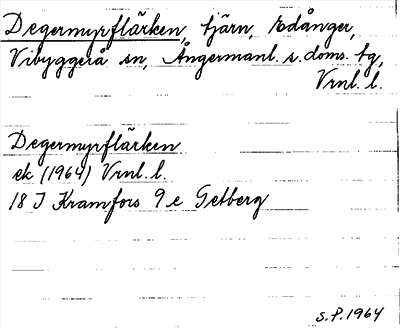 Degermyrflärken, tjärn, Edånger,
Vibyggerå sn, Ångermanl. s. doms. tg,
Vrnl. l.
Degermyrflärken
ek (1964) Vrnl. l.
18 I Kramfors 9 e Getberg
S.P. 1964